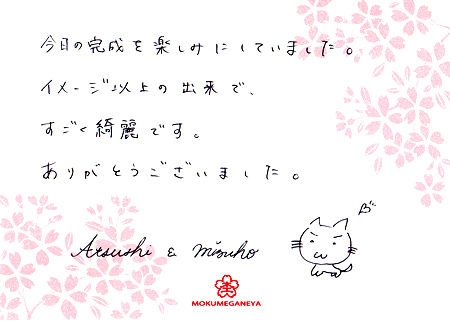 今日の完成を楽しみにしていました。
イメージ以上の出来で、
すごく綺麗です。
ありがとうございました。
Atsushi & Mizuho
MOKUMEGANEYA